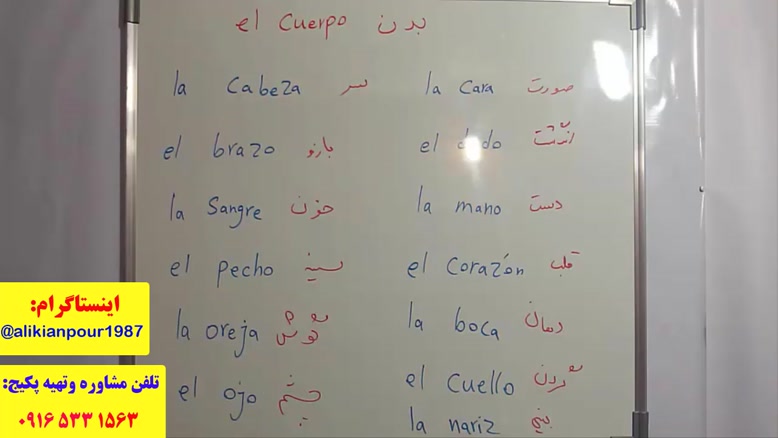 el cuerpo بدن
la cabeza سر
la cara صورت
el brazo بازو
el dedo انگشت
la sangre خون
la mano دست
el pecho سینه
el corazón قلب
la oreja گوش
la boca دهان
el ojo چشم
el cuello گردن
la nariz بینی
اینستاگرام:
@alikianpour1987
تلفن مشاوره وتهیه پکیج:
۰۹۱۶ ۵۳۳ ۱۵۶۳